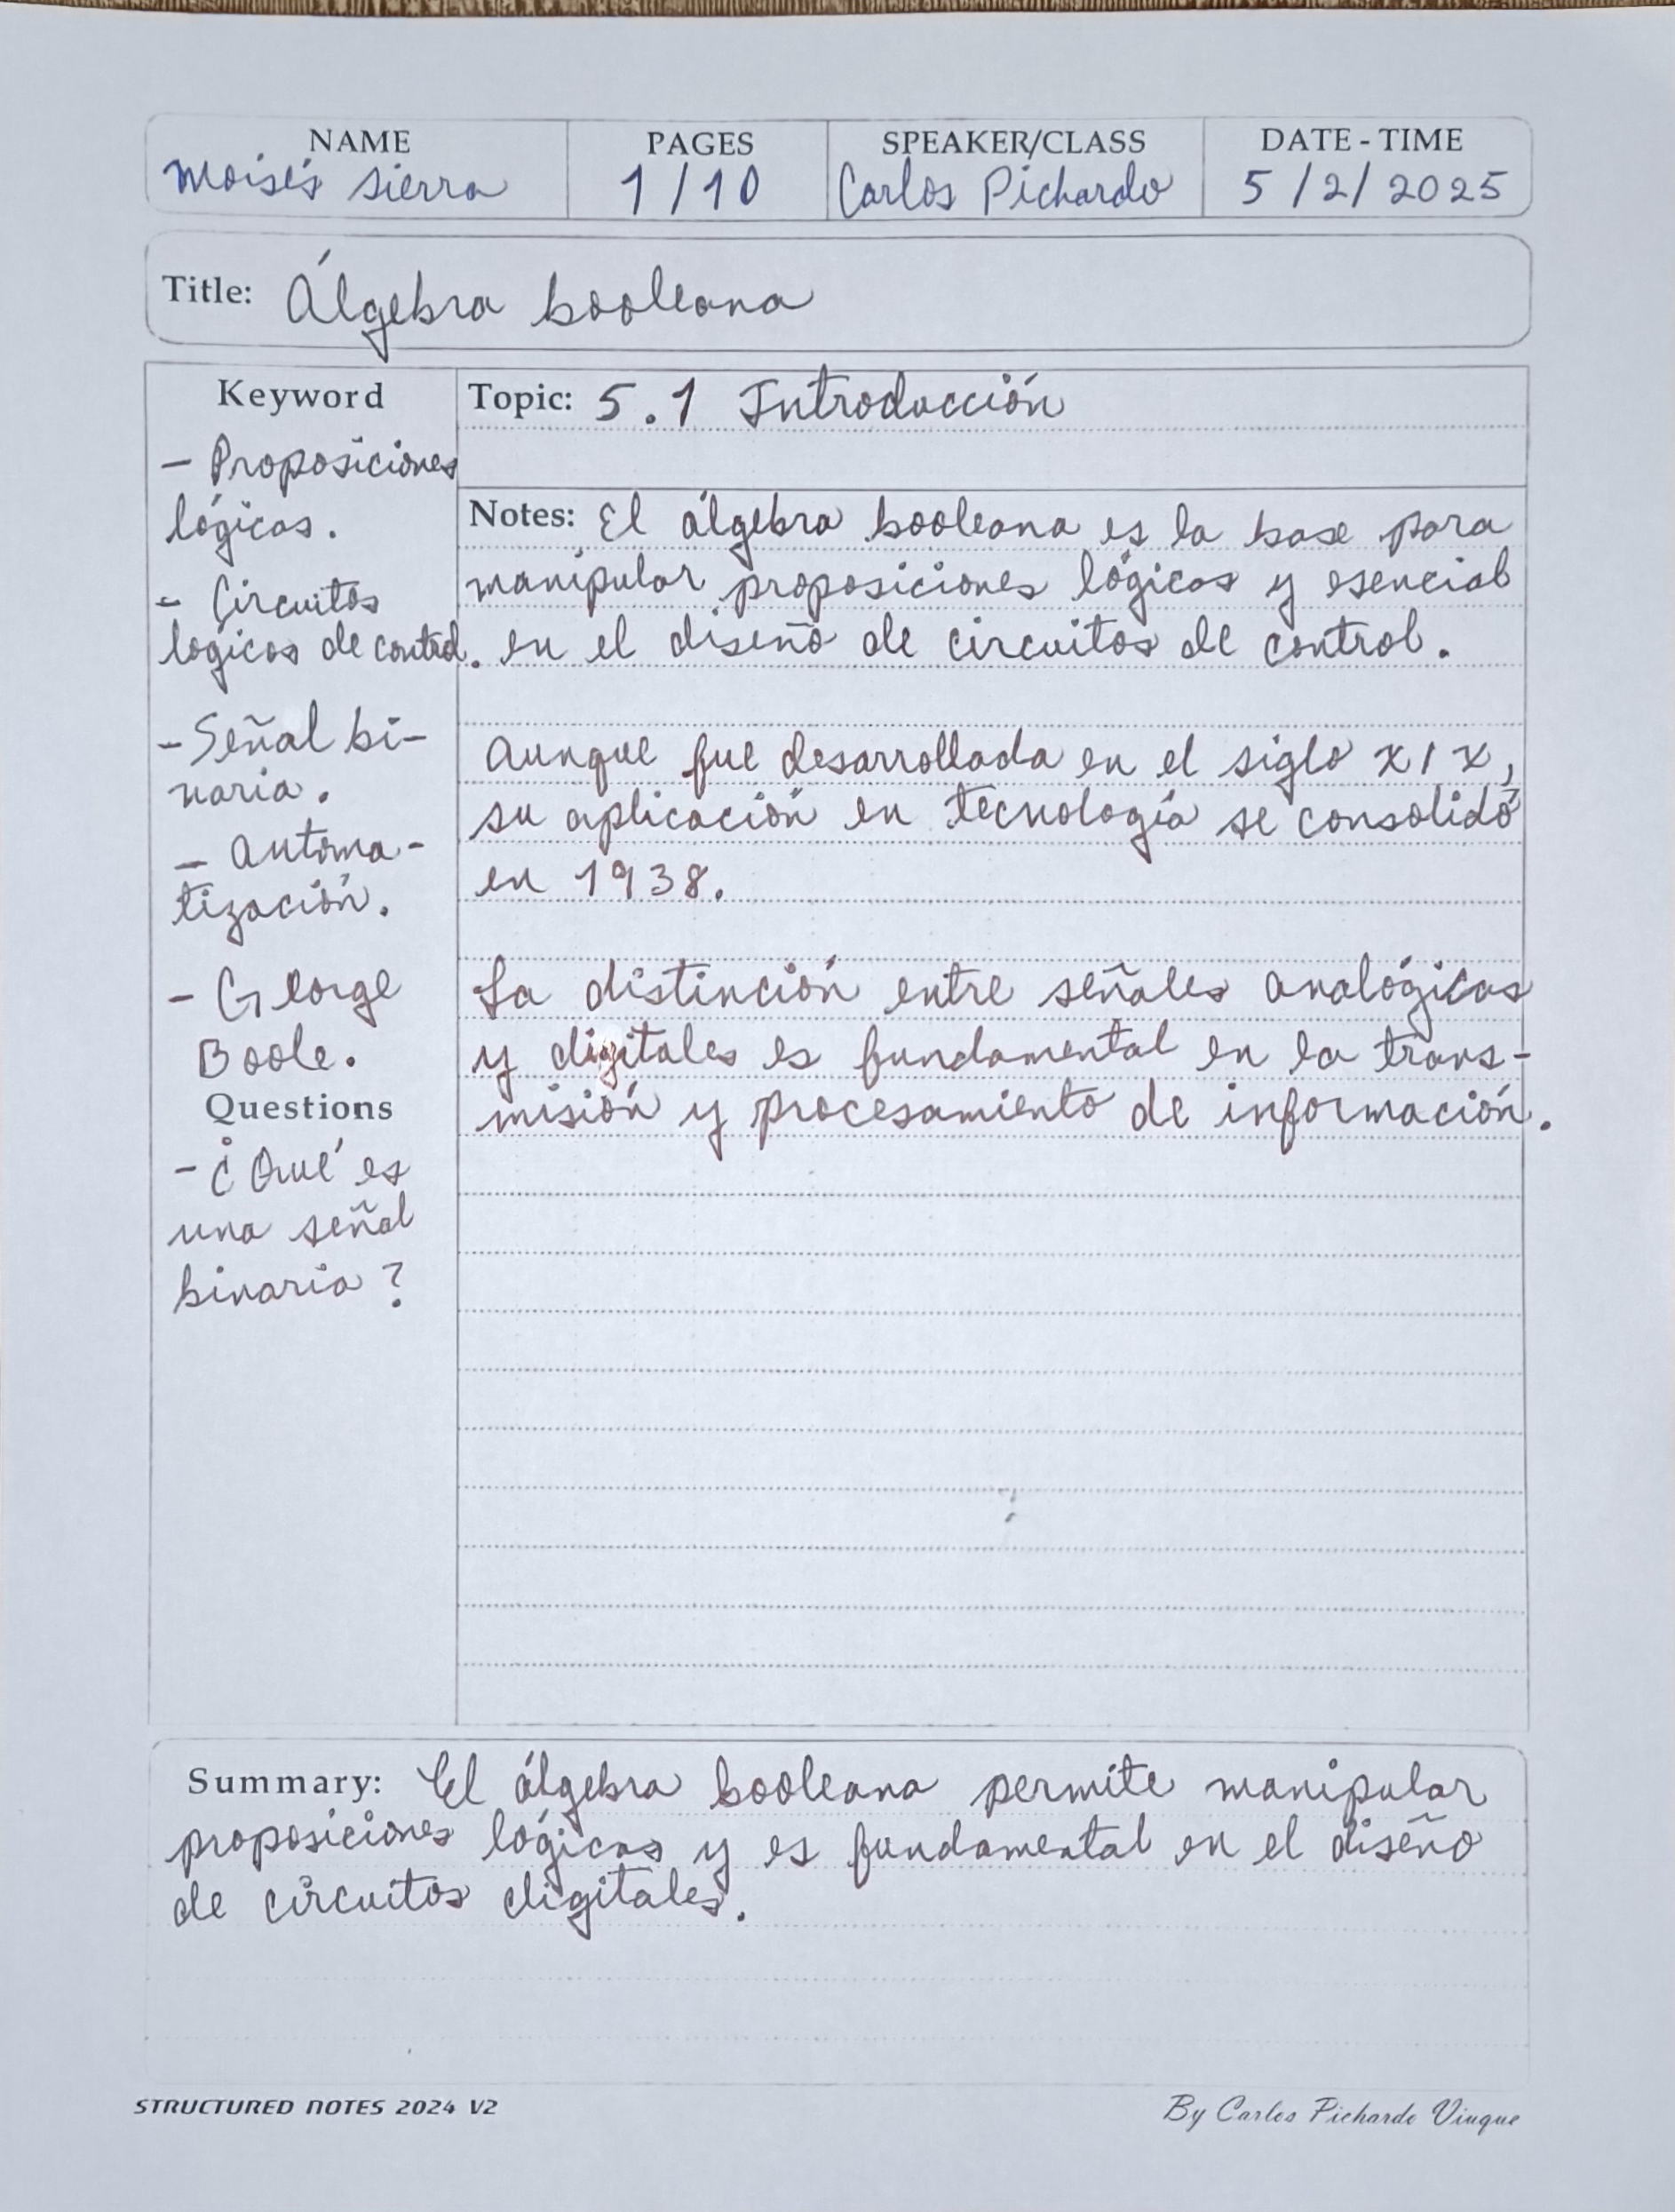 NAME
Moisés Sierra
PAGES
1/10
SPEAKER/CLASS
Carlos Pichardo
DATE - TIME
5/2/2025
Title: Álgebra booleana
Keyword
- Proposiciones
lógicas.
- Circuitos
lógicos de control.
- Señal bi-
naria.
- Automa-
tización.
- George
Boole.
Questions
- ¿Qué es
una señal
binaria?
Topic: 5.1 Introducción
Notes: El álgebra booleana es la base para
manipular proposiciones lógicas y esencial
en el diseño de circuitos de control.
Aunque fue desarrollada en el siglo XIX,
su aplicación en tecnología se consolidó
en 1938.
La distinción entre señales analógicas
y digitales es fundamental en la trans-
misión y procesamiento de información.
Summary: El álgebra booleana permite manipular
proposiciones lógicas y es fundamental en el diseño
de circuitos digitales.
STRUCTURED NOTES 2024 V2
By Carlos Pichardo Viuque